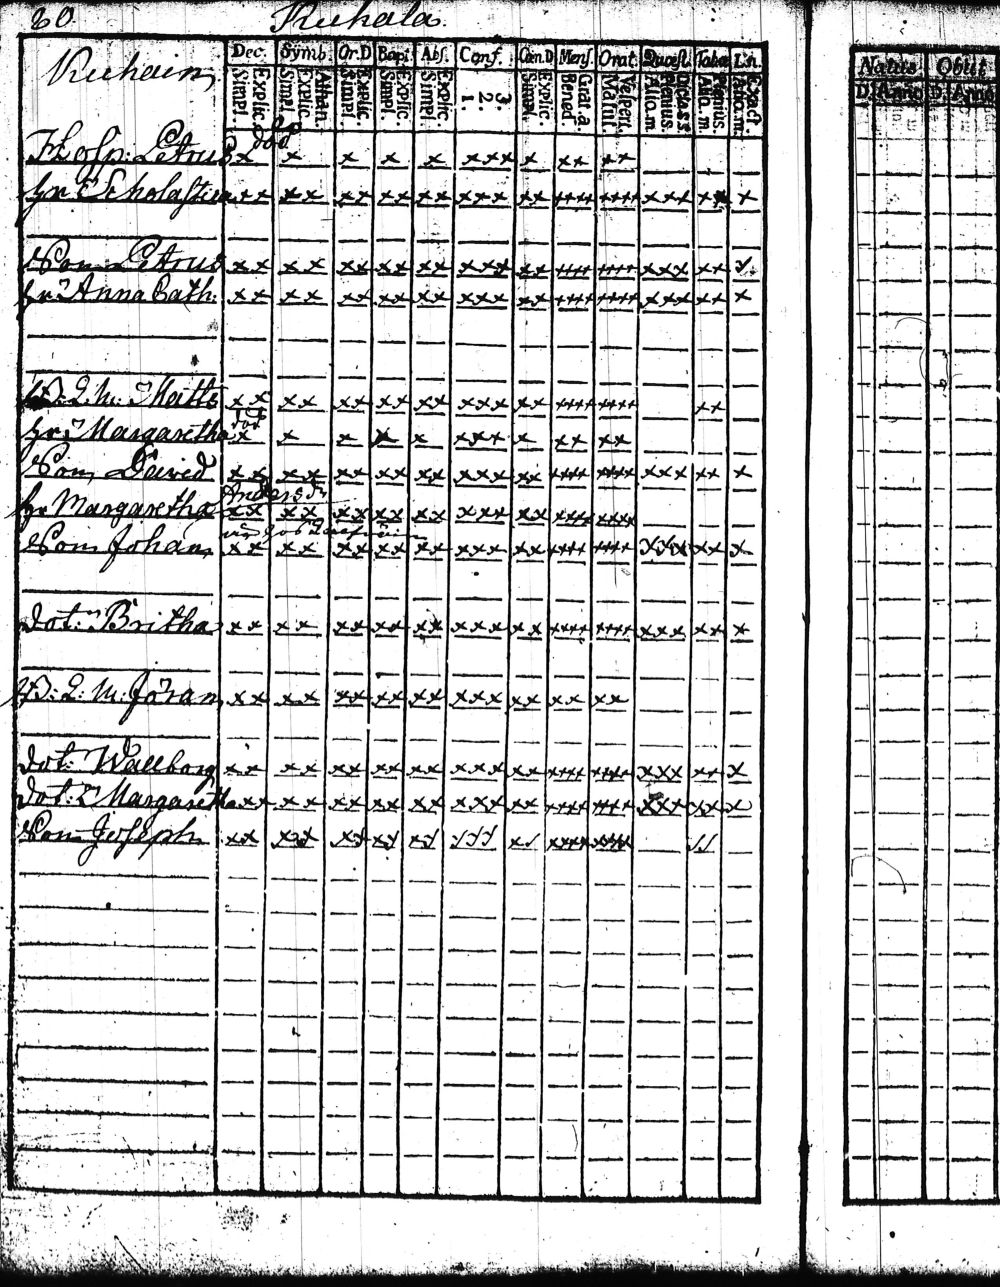 60. Kuhala.
Kuhain, Dec. Symb. Or.D Bapt. Abs. Conf. Cœn.D Mens. Orat. Quæst. Taba L.n. Natus Obiit
Explic. Simpl. Athan. Explic. Simpl. Explic. Simpl. Explic. Simpl. Explic. Simpl. 3. 2. 1. Explic. Simpl. Grat. a. Bened. Vesper. Matut. Dicta SS. Plenius. Aliq. m. Plenius. Aliq. m. Exact. Aliq. m. D. Anno D. Anno
död
Petrus x x x x x xxx x xx xx
hu Scholastica xx xx xx xx xx xxx xx xxxx xxxx xxx xx x
Son Petrus xx xx xx xx xx xxx xx xxxx xxxx xxx xx x
hu: Anna Cath: xx xx xx xx xx xxx xx xxxx xxxx xxx xx x
Matts xx xx xx xx xx xxx xx xxxx xxxx xx
död
hu: Margaretha x x x x x xxx x xx xx
Son David xx xx xx xx xx xxx xx xxxx xxxx xxx xx x
Anders dr
hu Margaretha xx xx xx xx xx xxx xx xxxx xxxx
Son Johan xx xx xx xx xx xxx xx xxxx xxxx xxx xx x
dot: Britha xx xx xx xx xx xxx xx xxxx xxxx xxx xx x
Jöran xx xx xx xx xx xxx xx xx xx
dot: Wallborg xx xx xx xx xx xxx xx xxxx xxxx xxx xx x
dot: Margaretha xx xx xx xx xx xxx xx xxxx xxxx xxx xx x
Son Joseph xx xx xx xx xx xxx xx xxxx xxxx xx